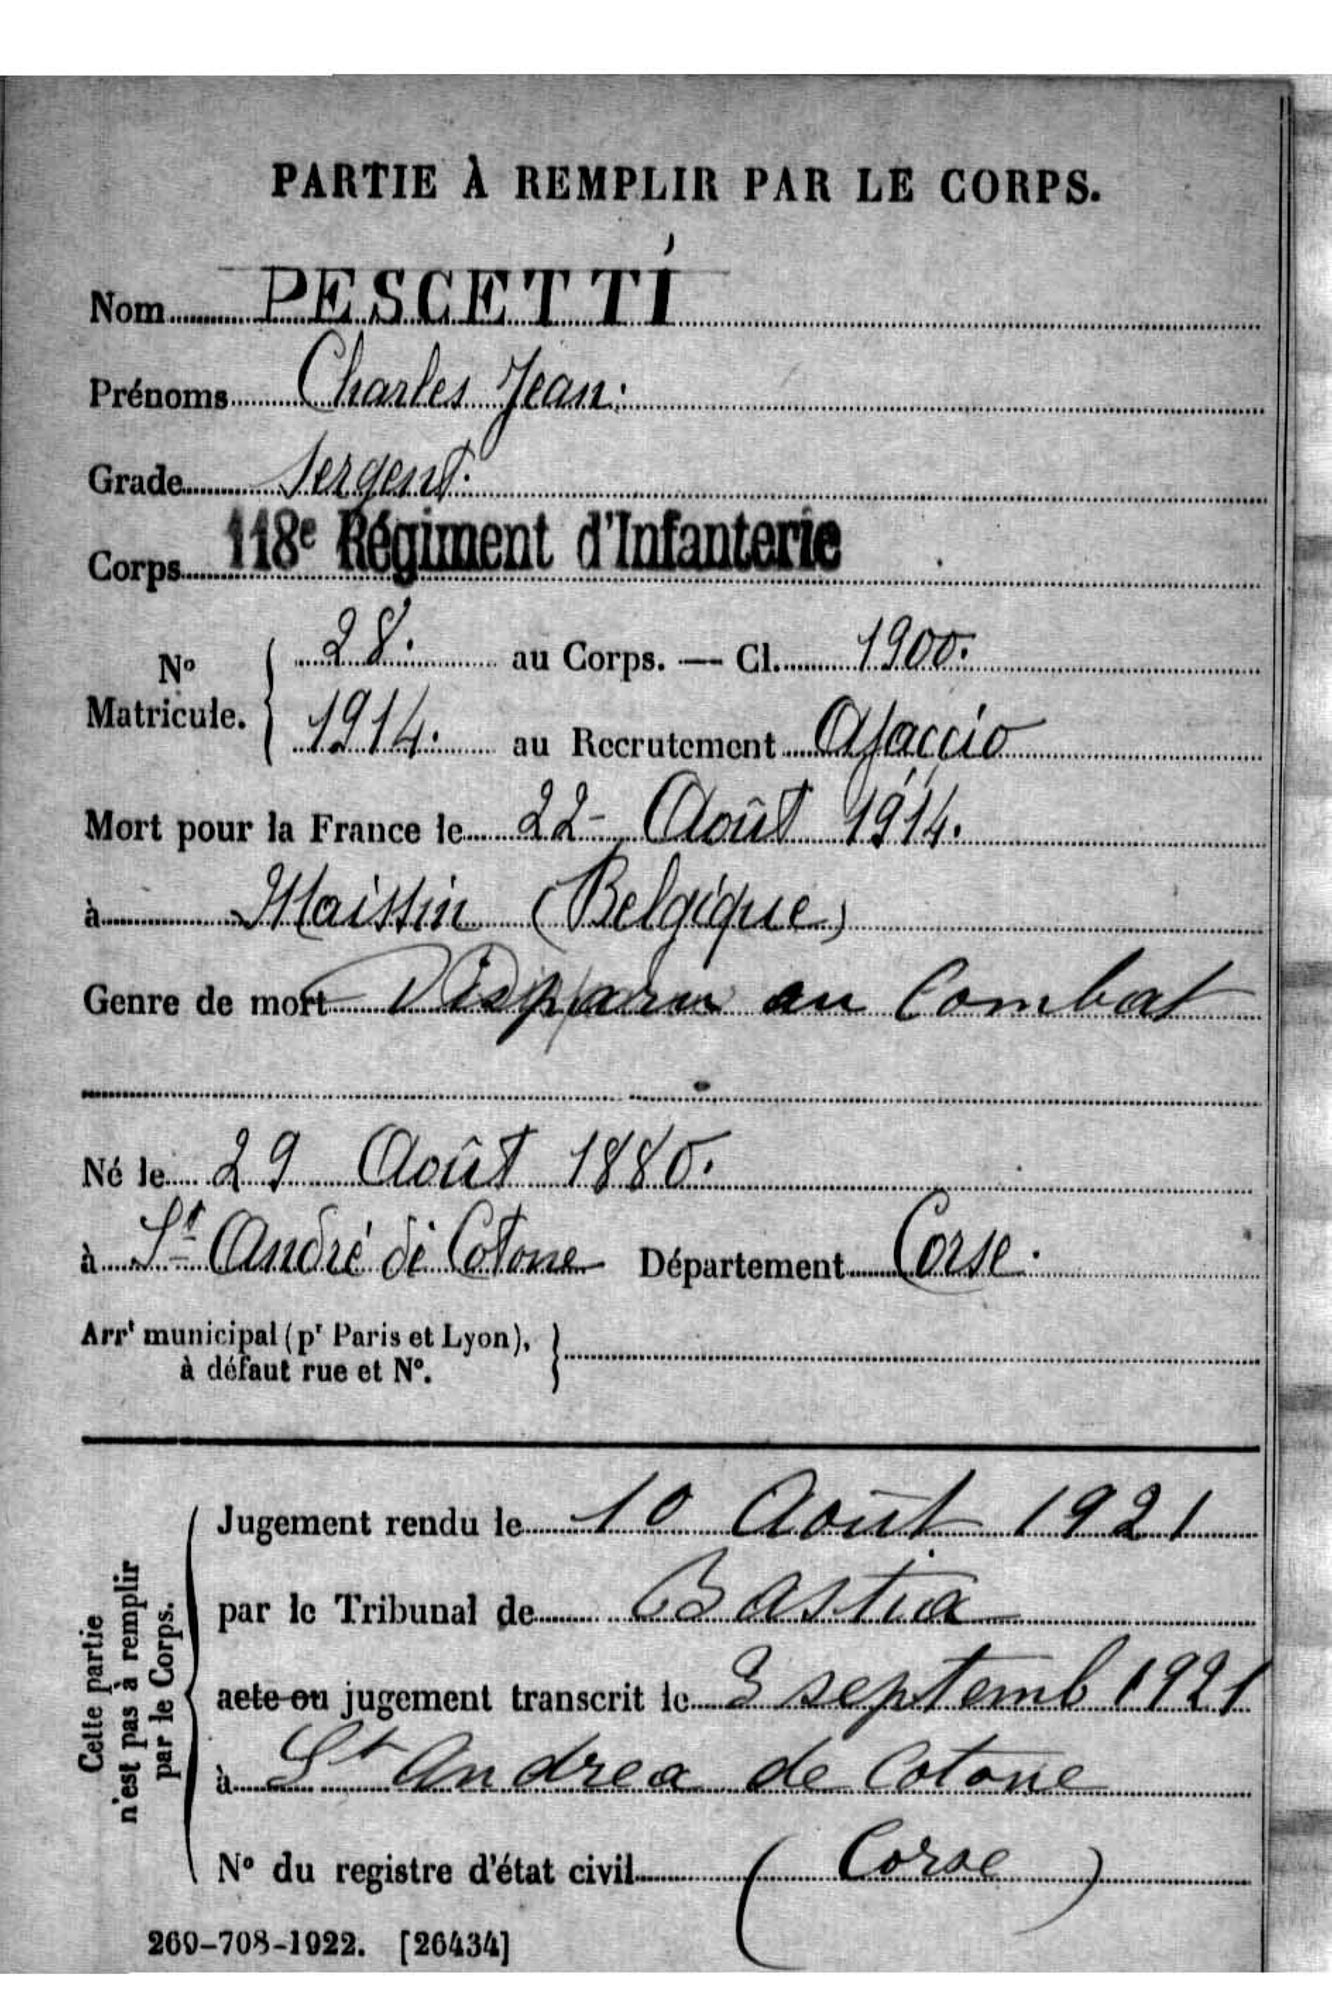 PARTIE À REMPLIR PAR LE CORPS.
Nom PESCETTI
Prénoms Charles Jean.
Grade Sergent.
Corps 118e Régiment d'Infanterie
No Matricule. { 28. au Corps. — Cl. 1900.
1914. au Recrutement Ajaccio
Mort pour la France le 22 - Août 1914.
à Maissin (Belgique)
Genre de mort Disparu au Combat
Né le 29 Août 1880.
à St André di Cotone Département Corse.
Arrt municipal (pr Paris et Lyon), }
à défaut rue et No.
Cette partie
n'est pas à remplir
par le Corps.
Jugement rendu le 10 Août 1921
par le Tribunal de Bastia
acte ou jugement transcrit le 3 septemb 1921
à St Andrea de Cotone
No du registre d'état civil (Corse)
269-708-1922. [26434]